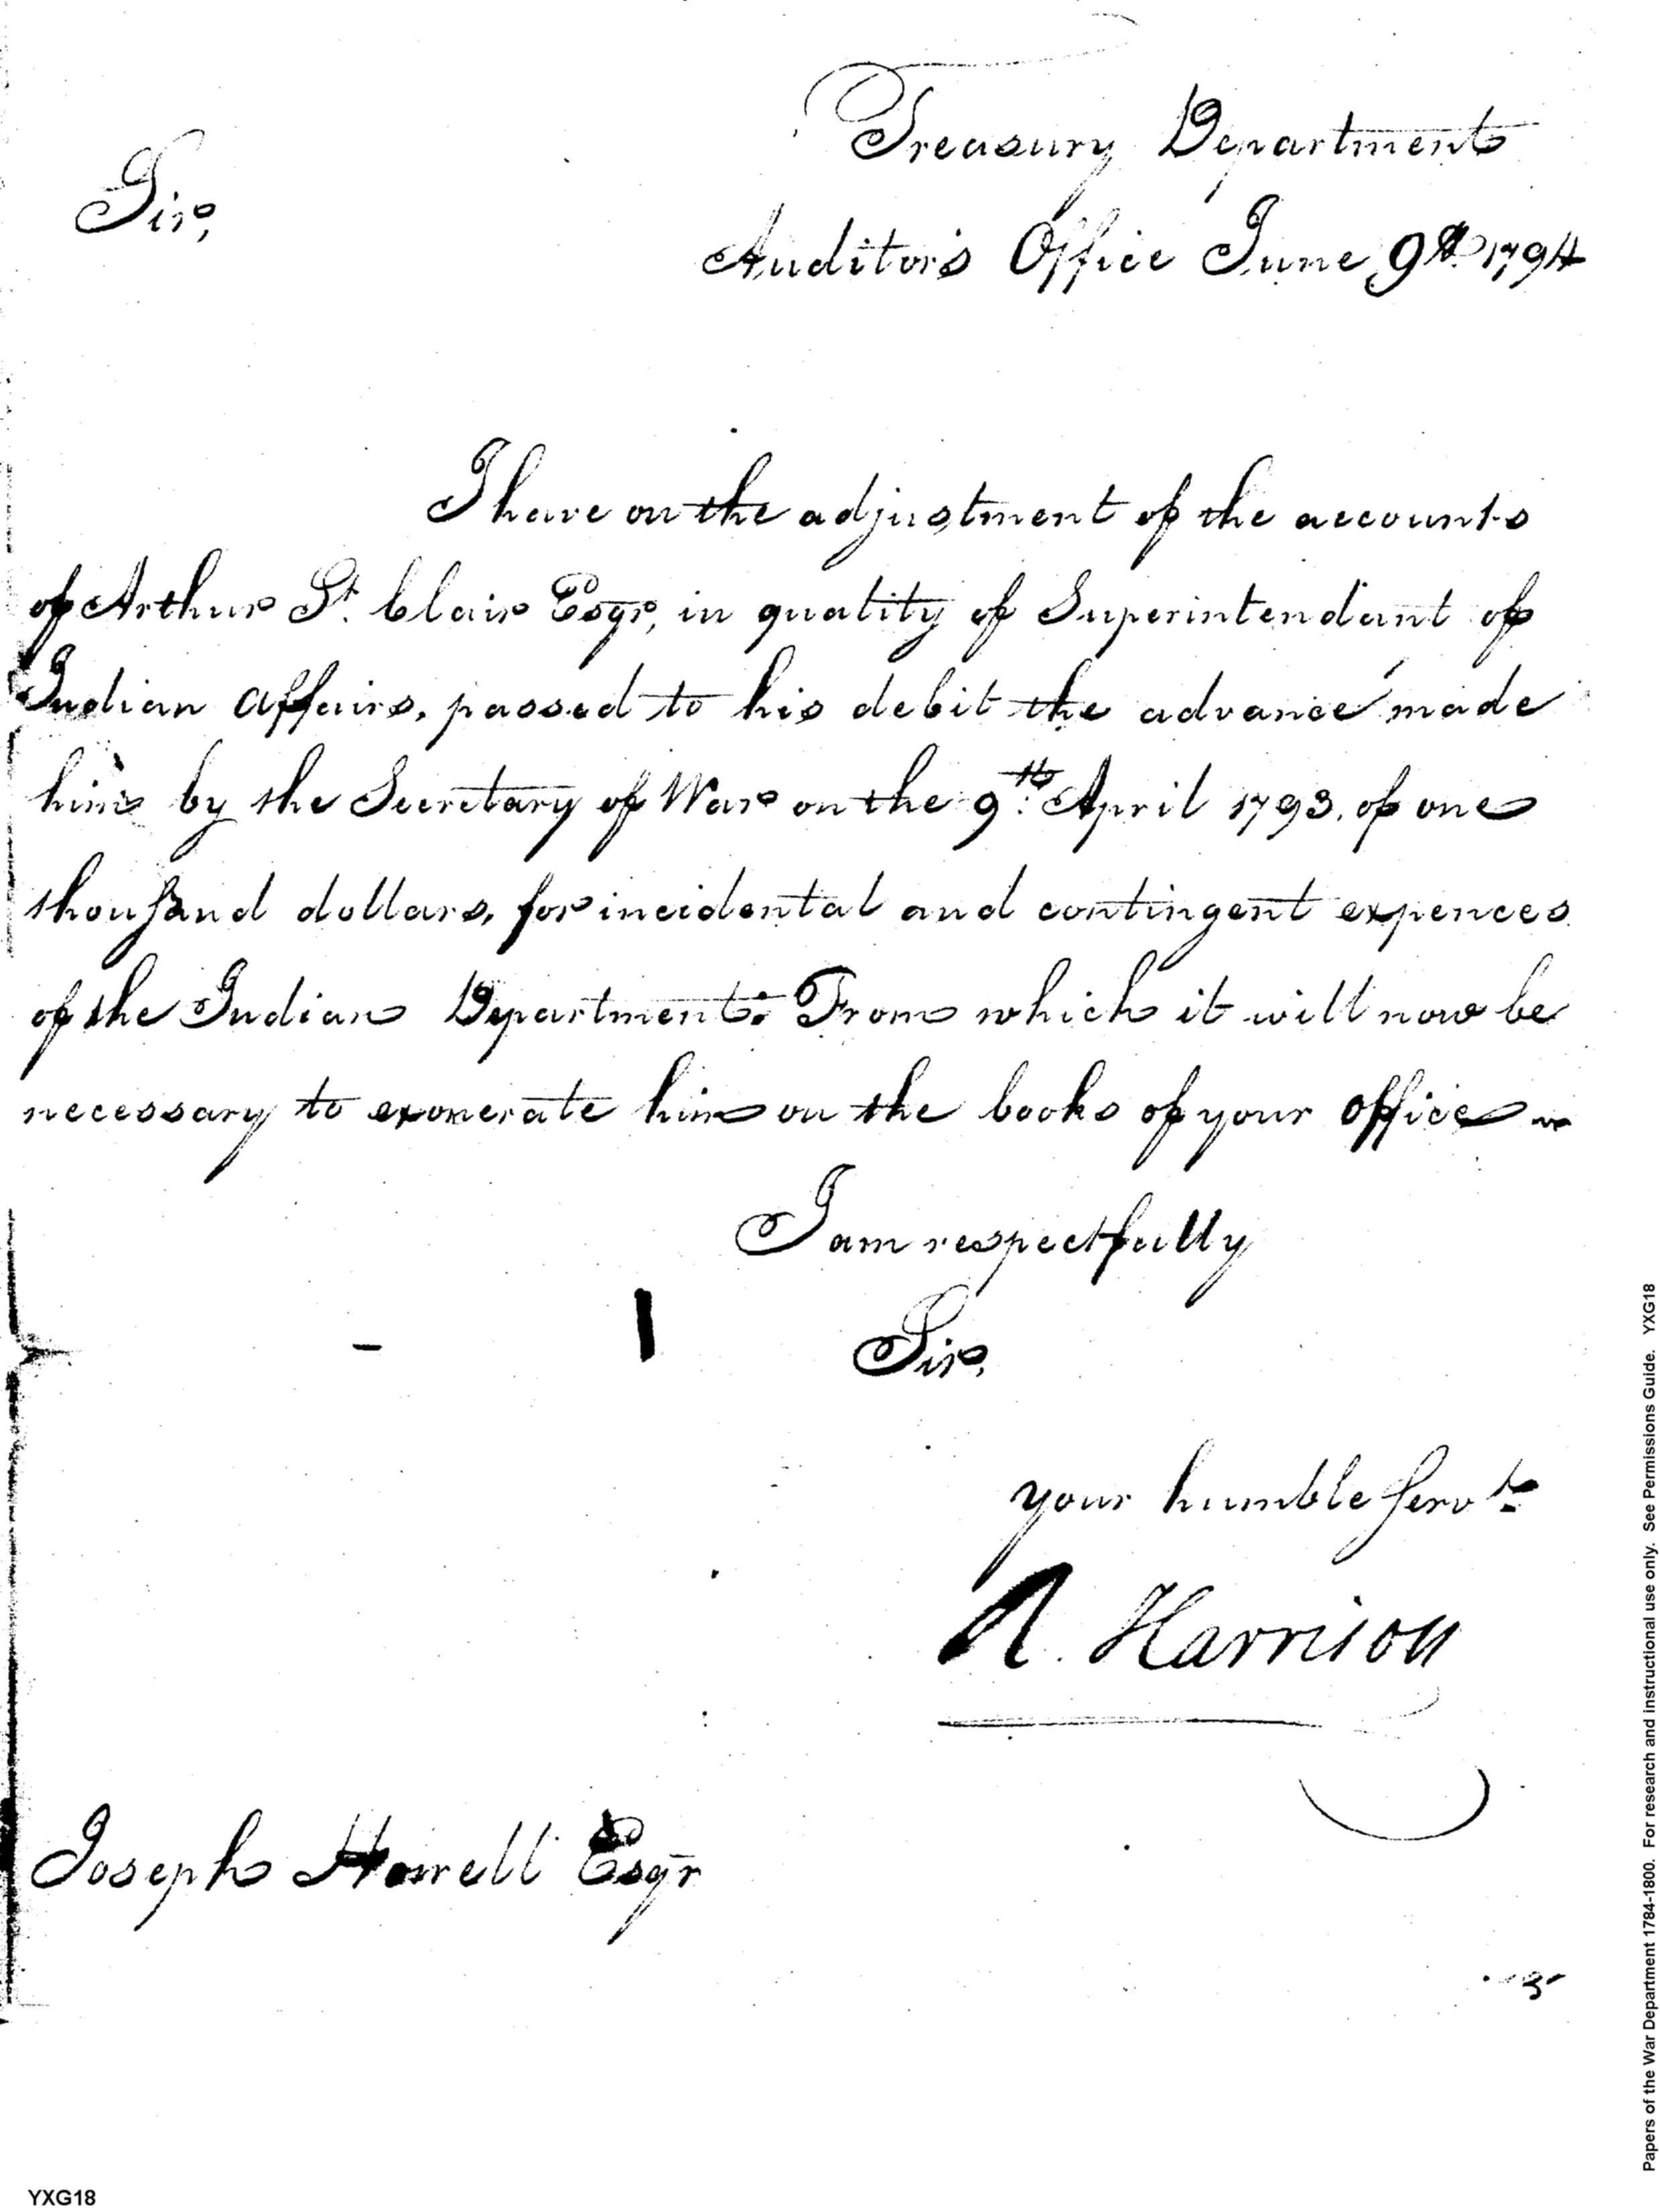 Treasury Department
Sir,
Auditor's Office June 9th 1794
I have on the adjustment of the accounts
of Arthur St. Clair Esqr, in quality of Superintendant of
Indian Affairs, passed to his debit the advance made
him by the Secretary of War on the 9th April 1793, of one
thousand dollars, for incidental and contingent expences
of the Indian Department: From which it will now be
necessary to exonerate him on the books of your Office
I am respectfully
Sir,
your humble Servt
R. Harrison
Joseph Howell Esqr
YXG18
Papers of the War Department 1784-1800. For research and instructional use only. See Permissions Guide. YXG18